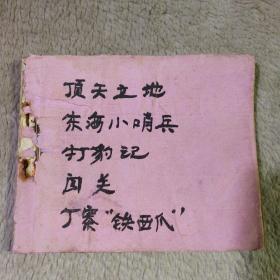 顶天立地
东海小哨兵
打豹记
闯关
丁寨“铁西瓜”